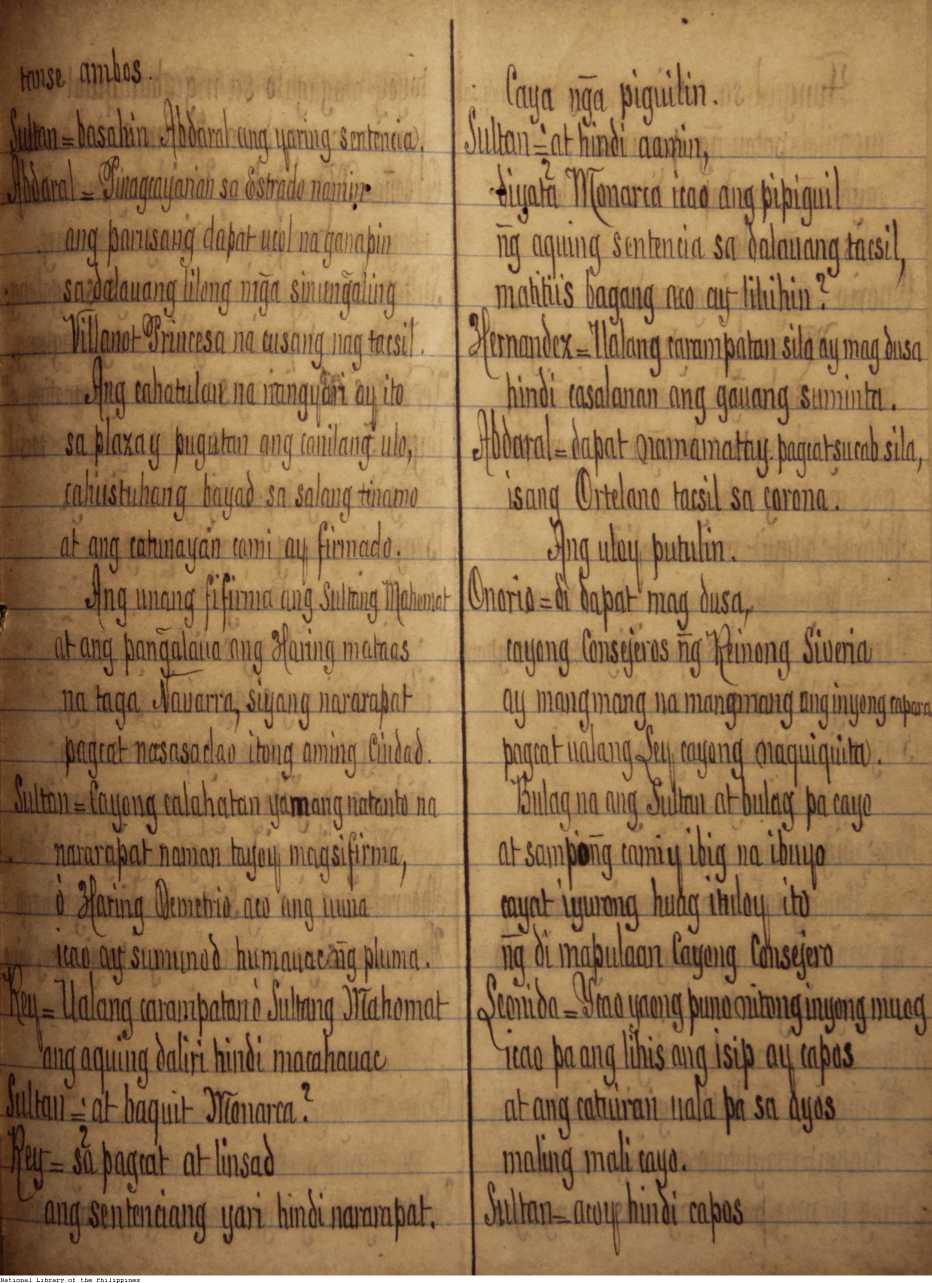 tanse ambos.
Sultan = basahin Abdaral ang yaring sentencia.
Abdaral = Pinagcayarian sa Estrado namin
ang parusang dapat ucol na ganapin
sa dalauang lilong mg̃a sinung̃aling
Villanot Princesa na cusang nag tacsil.
Ang cahatulan na nangyari ay ito
sa plaza y pugutan ang canilang ulo,
cahustuhang bayad sa salang tinamo
at ang catunayan cami ay firmado.
Ang unang fifirma ang Sultang Mahomat
at ang pang̃alaua ang Haring mataas
na taga Navarra, siyang nararapat
pagcat nasasaclao itong aming Ciudad.
Sultan = Cayong calahatan yamang natanto na
nararapat naman tayoy magsifirma,
ò Haring Demetrio aco ang uuna
icao ay sumunod humauac ng̃ pluma.
Rey = Ualang carampatan ò Sultang Mahomat
ang aquing daliri hindi macahauac
Sultan = at baquit Monarca?
Rey = sa pagcat at linsad
ang sentenciang yari hindi nararapat.
Caya ng̃a piguilin.
Sultan = at hindi aamin,
diyata Monarca icao ang pipiguil
ng̃ aquing sentencia sa dalauang tacsil,
matitiis bagang aco ay lihihin?
Hernandez = Ualang carampatan sila ay mag dusa
hindi casalanan ang gauang suminta.
Abdaral = dapat mamamatay pagcat sucab sila,
isang Ortelano tacsil sa corona.
Ang uloy putulin.
Onorio = di dapat mag dusa,
cayong Consejeros ng̃ Reinong Siveria
ay mangmang na mangmang ang inyong capara
pagcat ualang Ley cayong naquiquita.
Bulag na ang Sultan at bulag pa cayo
at sampong̃ camiy ibig na ibuyo
cayat iyurong huag ituloy ito
ng̃ di mapulaan Cayong Consejero
Leonida = Ycao yaong puno nitong inyong muog
icao pa ang lihis ang isip ay capos
at ang catuiran uala pa sa ayos
maling mali cayo.
Sultan = acoy hindi capos
National Library of the Philippines